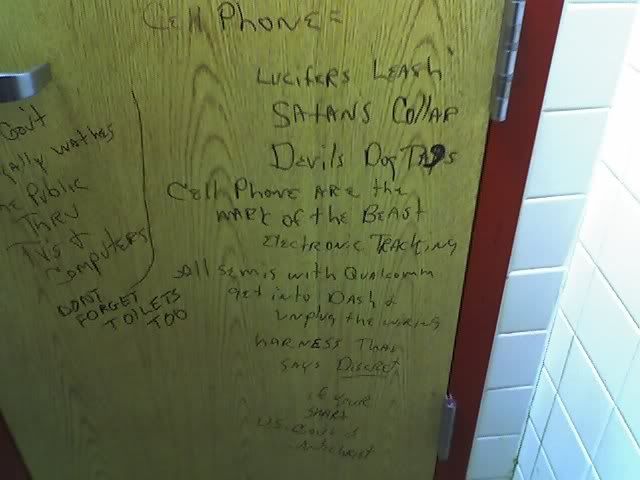 Cell Phone =
Lucifers Leash
Satans Collar
Devils Dog Tags
Cell Phone are the
mark of the Beast
Electronic Tracking
all semis with Qualcomm
get into Dash &
unplug the wiring
harness That
says Discret
if your
smart
U.S. Govt is
Antichrist
Govt
wathes
Public
Thru
TVs &
Computers
DONT
FORGET
TOILETS
TOO